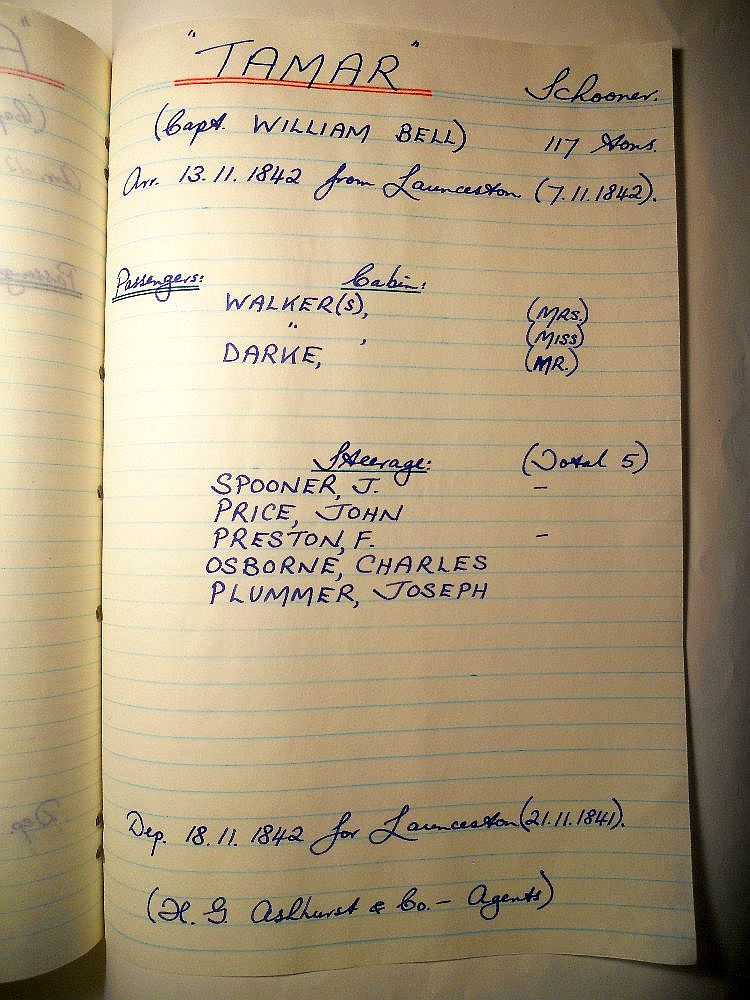 "TAMAR"
Schooner.
(Capt. WILLIAM BELL) 117 tons.
Arr. 13.11.1842 from Launceston (7.11.1842).
Passengers: Cabin:
WALKER(S), (MRS.)
" , (MISS)
DARKE, (MR.)
Steerage: (Total 5)
SPOONER, J. –
PRICE, JOHN
PRESTON, F. –
OSBORNE, CHARLES
PLUMMER, JOSEPH
Dep. 18.11.1842 for Launceston (21.11.1841).
(H. G. Ashhurst & Co. – Agents)